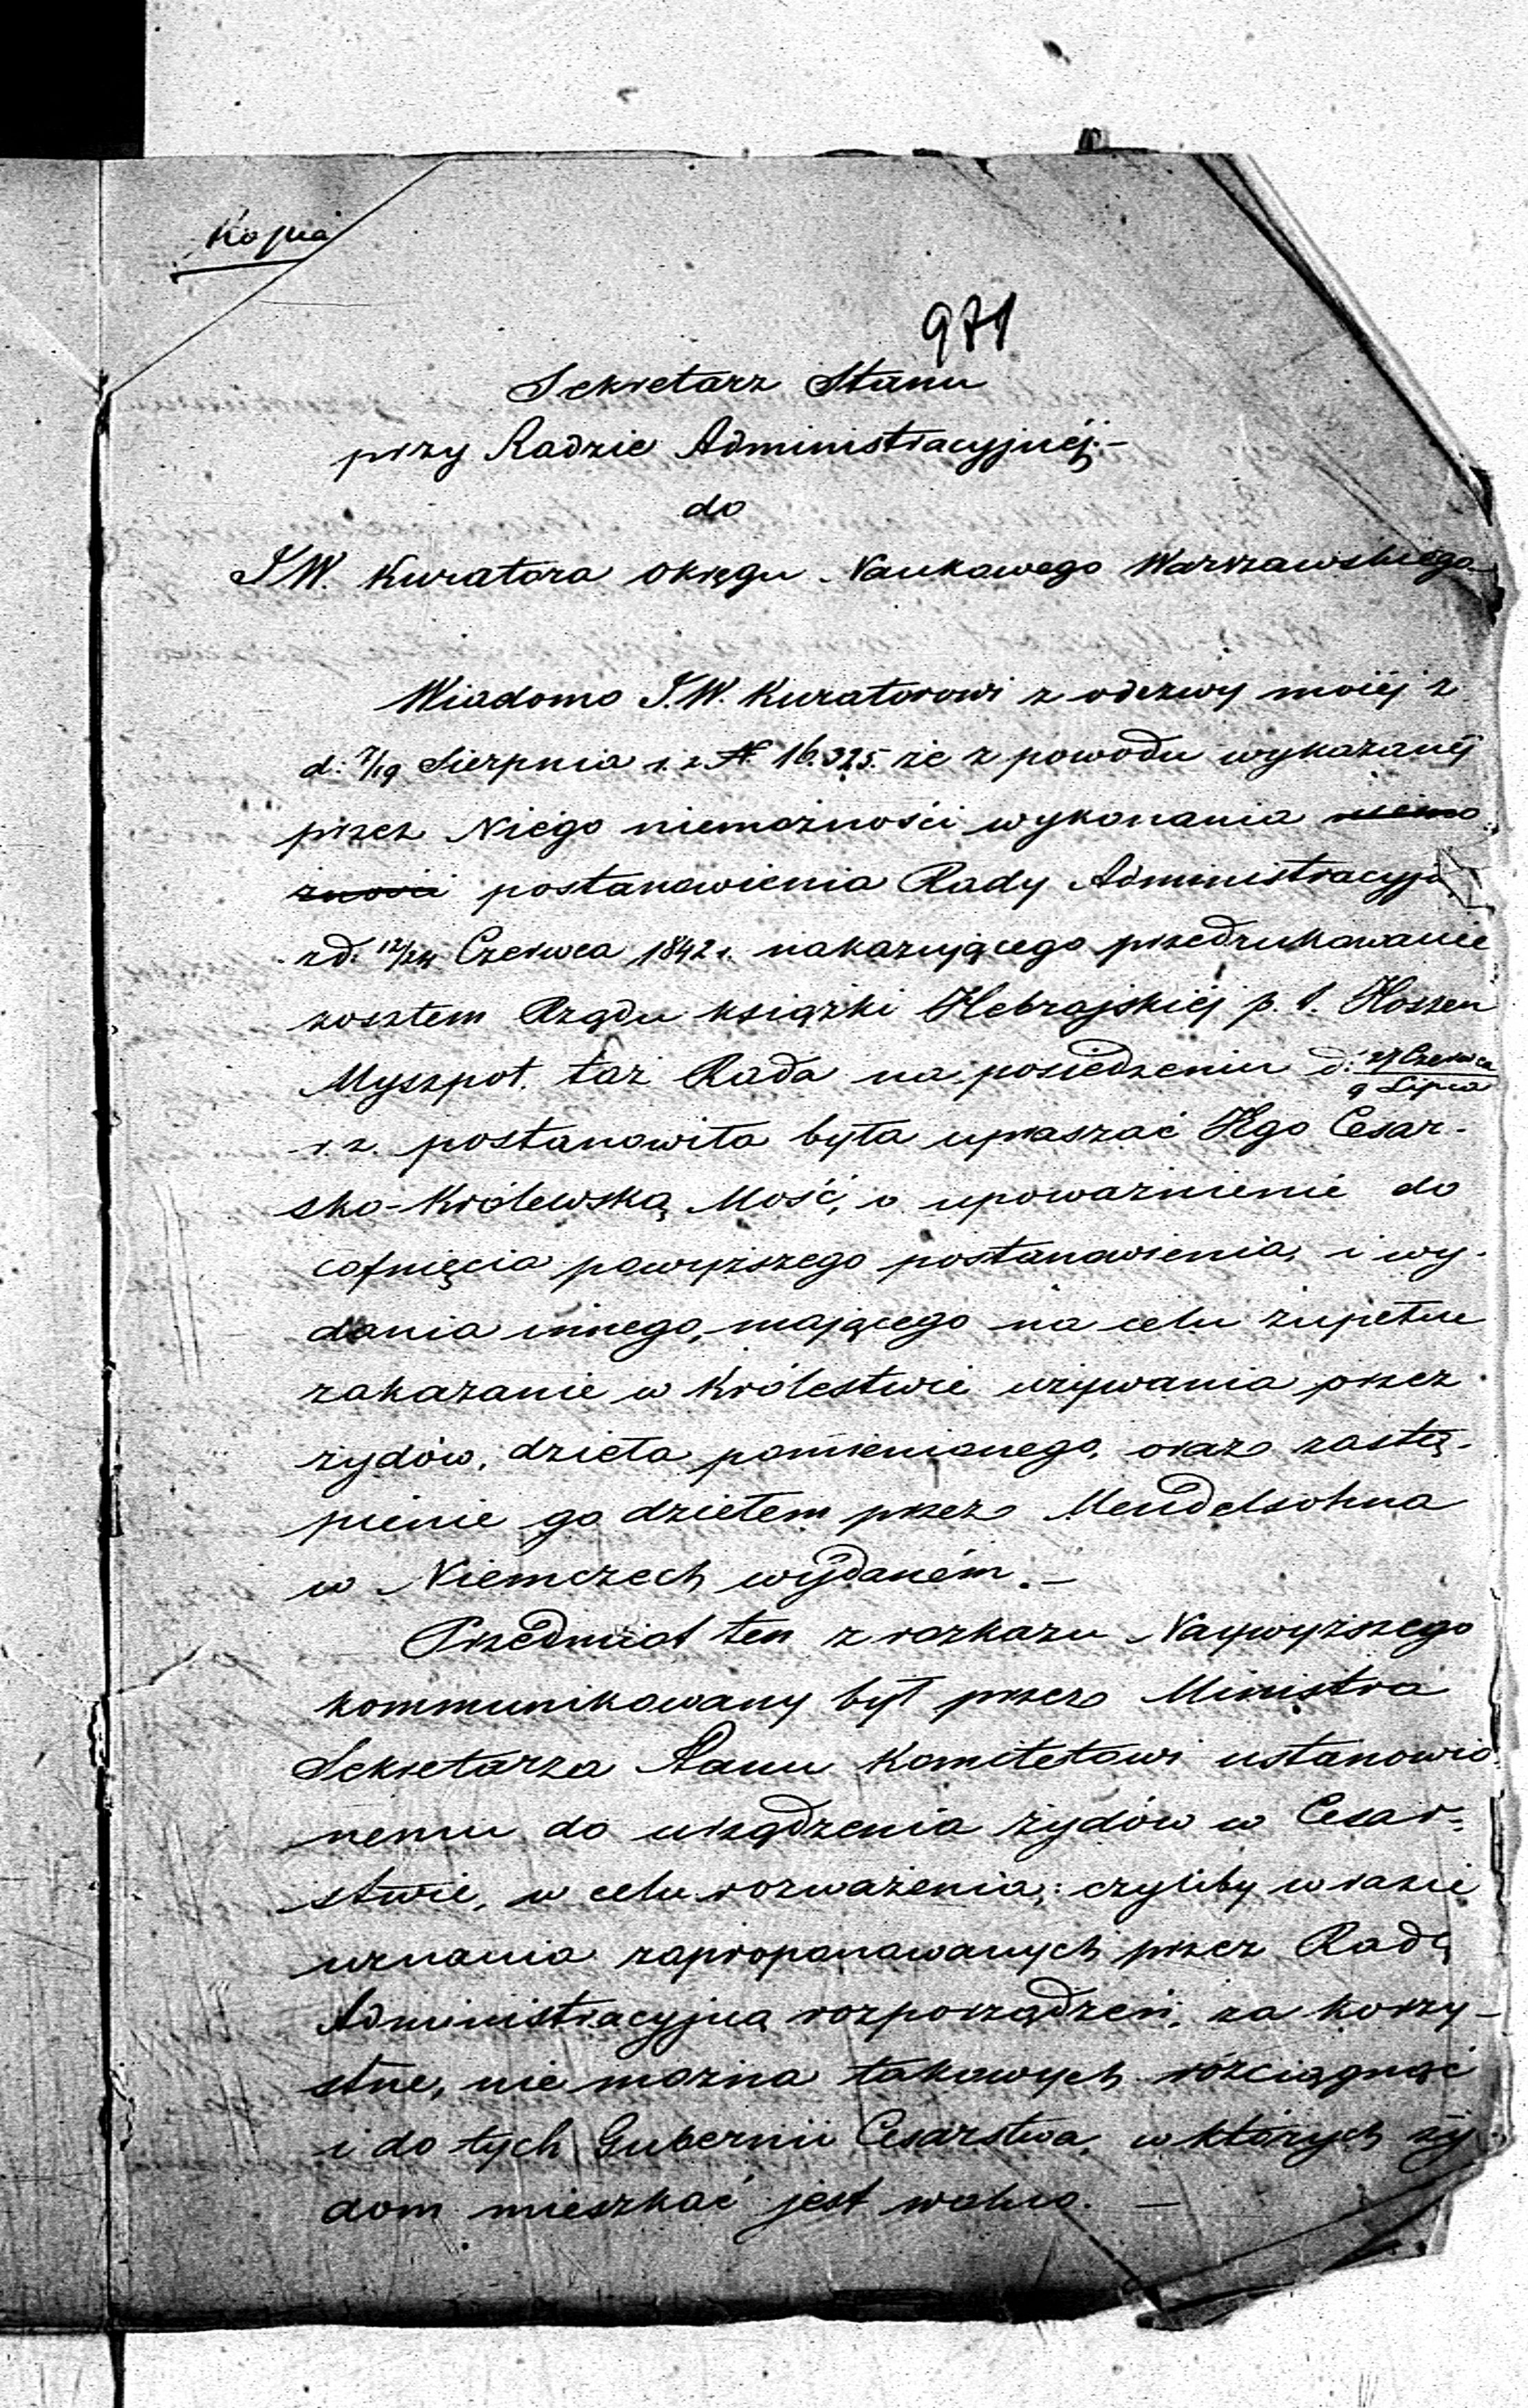 Kopia
971
Sekretarz Stanu
przy Radzie Administracyjnéj.-
do
J.W. Kuratora Okręgu Naukowego Warszawskiego
Wiadomo J.W. Kuratorowi z odezwy moiéj z
d: 7/19 Sierpnia r. z. N. 16.325. że z powodu wykazanéj
przez Niego niemożności wykonania niemo
żności postanowienia Rady Administracyjn
z d. 12/24 Czerwca 1842 r. nakazującego przedrukowanie
kosztem Rządu książki Hebrajskiéj p. t. Hoszen
Myszpot. taż Rada na posiedzeniu d: 27 Czerwca / 9 Lipca
r. z. postanowiła była upraszać Jego Cesar-
sko-Królewską Mość, o upoważnienie do
cofnięcia powyższego postanowienia, i wy-
dania innego, mającego na celu zupełne
zakazanie w Królestwie używania przez
żydów, dzieła pomienionego, oraz zastą-
pienie go dziełem przez Mendelsohna
w Niemczech wydaném.-
Przedmiot ten z rozkazu Naywyższego
kommunikowany był przez Ministra
Sekretarza Stanu Komitetowi ustanowio
nemu do urządzenia żydów w Cesar-
stwie, w celu rozważenia; czyliby w razie
uznania zaproponowanych przez Radę
Administracyjną rozporządzeń, za korzy-
stne, nie można takowych rozciągnąć
i do tych Gubernii Cesarstwa, w których ży
dom mieszkać jest wolno. -